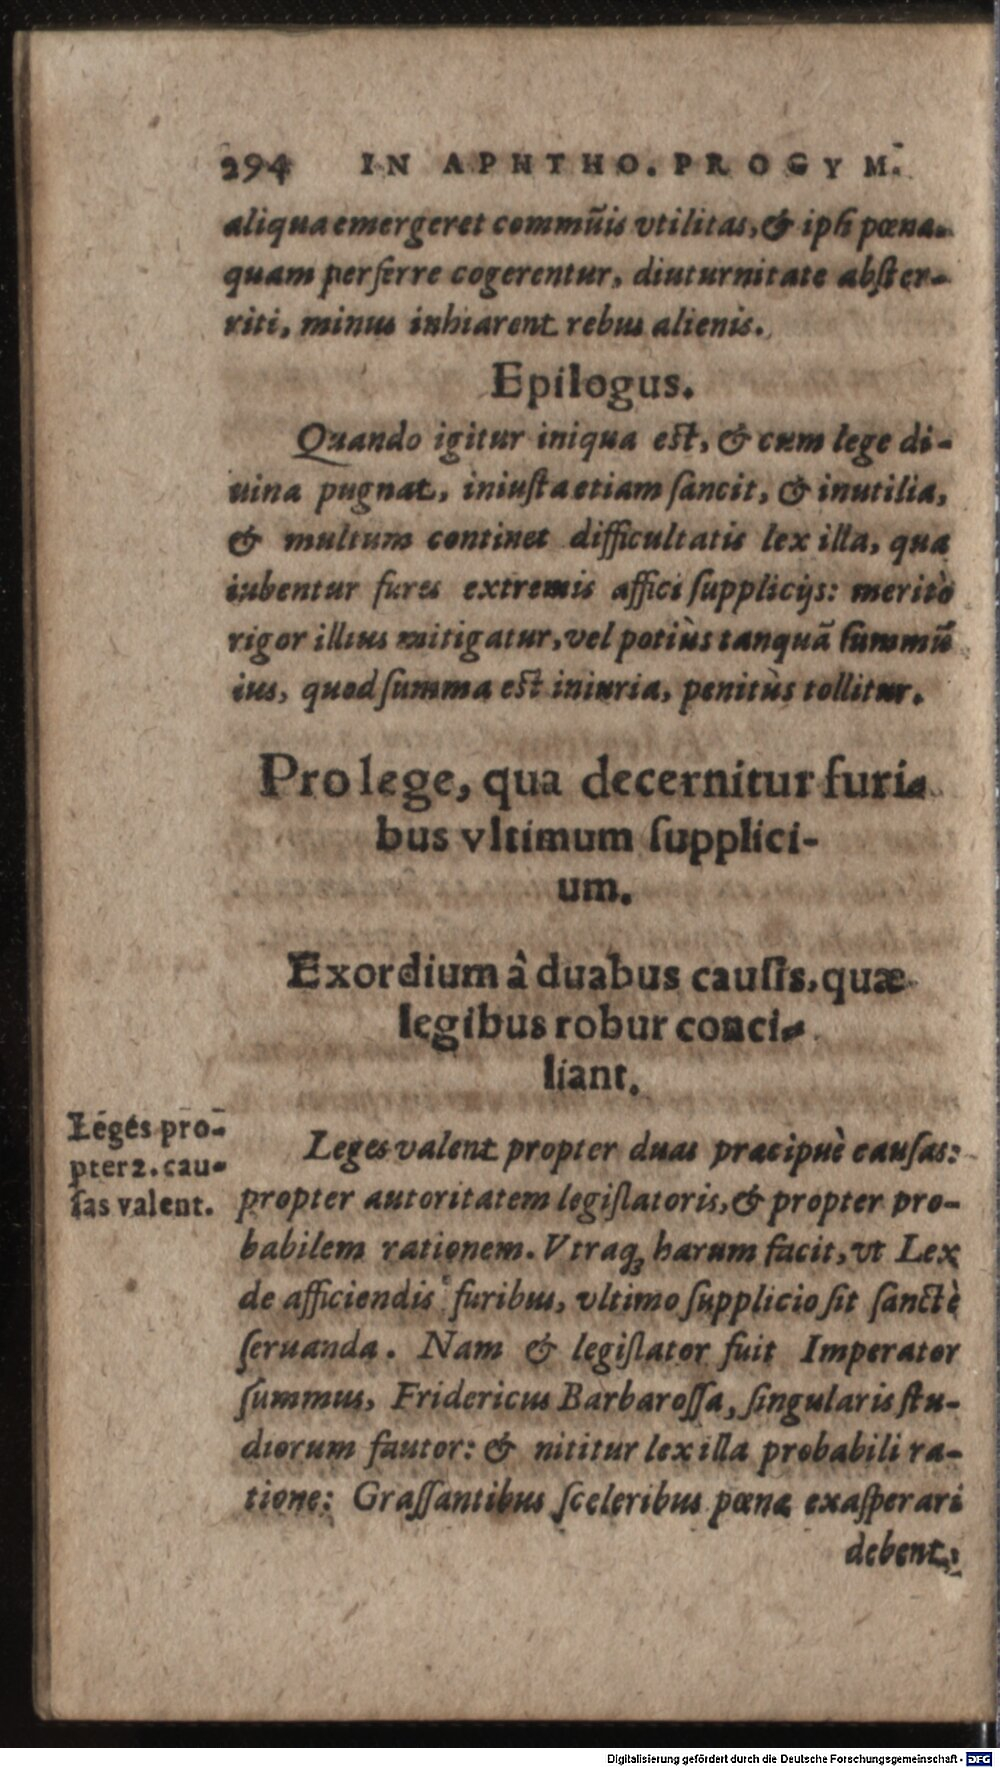 294 IN APHTHO. PROGYM.
aliqua emergeret commũis vtilitas, & ipſi pœna
quam perferre cogerentur, diuturnitate abſter-
riti, minus inhiarent rebus alienis.
Epilogus.
Quando igitur iniqua eſt, & cum lege di-
uina pugnat, iniuſta etiam ſancit, & inutilia,
& multum continet difficultatis lex illa, qua
iubentur fures extremis affici ſupplicijs: meritò
rigor illius mitigatur, vel potiùs tanquã ſummũ
ius, quod ſumma eſt iniuria, penitùs tollitur.
Pro lege, qua decernitur furi-
bus vltimum ſupplici-
um.
Exordium â duabus cauſis, quæ
legibus robur conci-
liant.
Leges pro-
pter 2. cau-
ſas valent.
Leges valent propter duas præcipuè cauſas:
propter autoritatem legiſlatoris, & propter pro-
babilem rationem. Vtraqꝫ harum facit, vt Lex
de afficiendis furibus, vltimo ſupplicio ſit ſanctè
ſeruanda. Nam & legiſlator fuit Imperator
ſummus, Fridericus Barbaroſſa, ſingularis ſtu-
diorum fautor: & nititur lex illa probabili ra-
tione: Graſſantibus ſceleribus pœnæ exaſperari
debent:
Digitalisierung gefördert durch die Deutsche Forschungsgemeinschaft - DFG